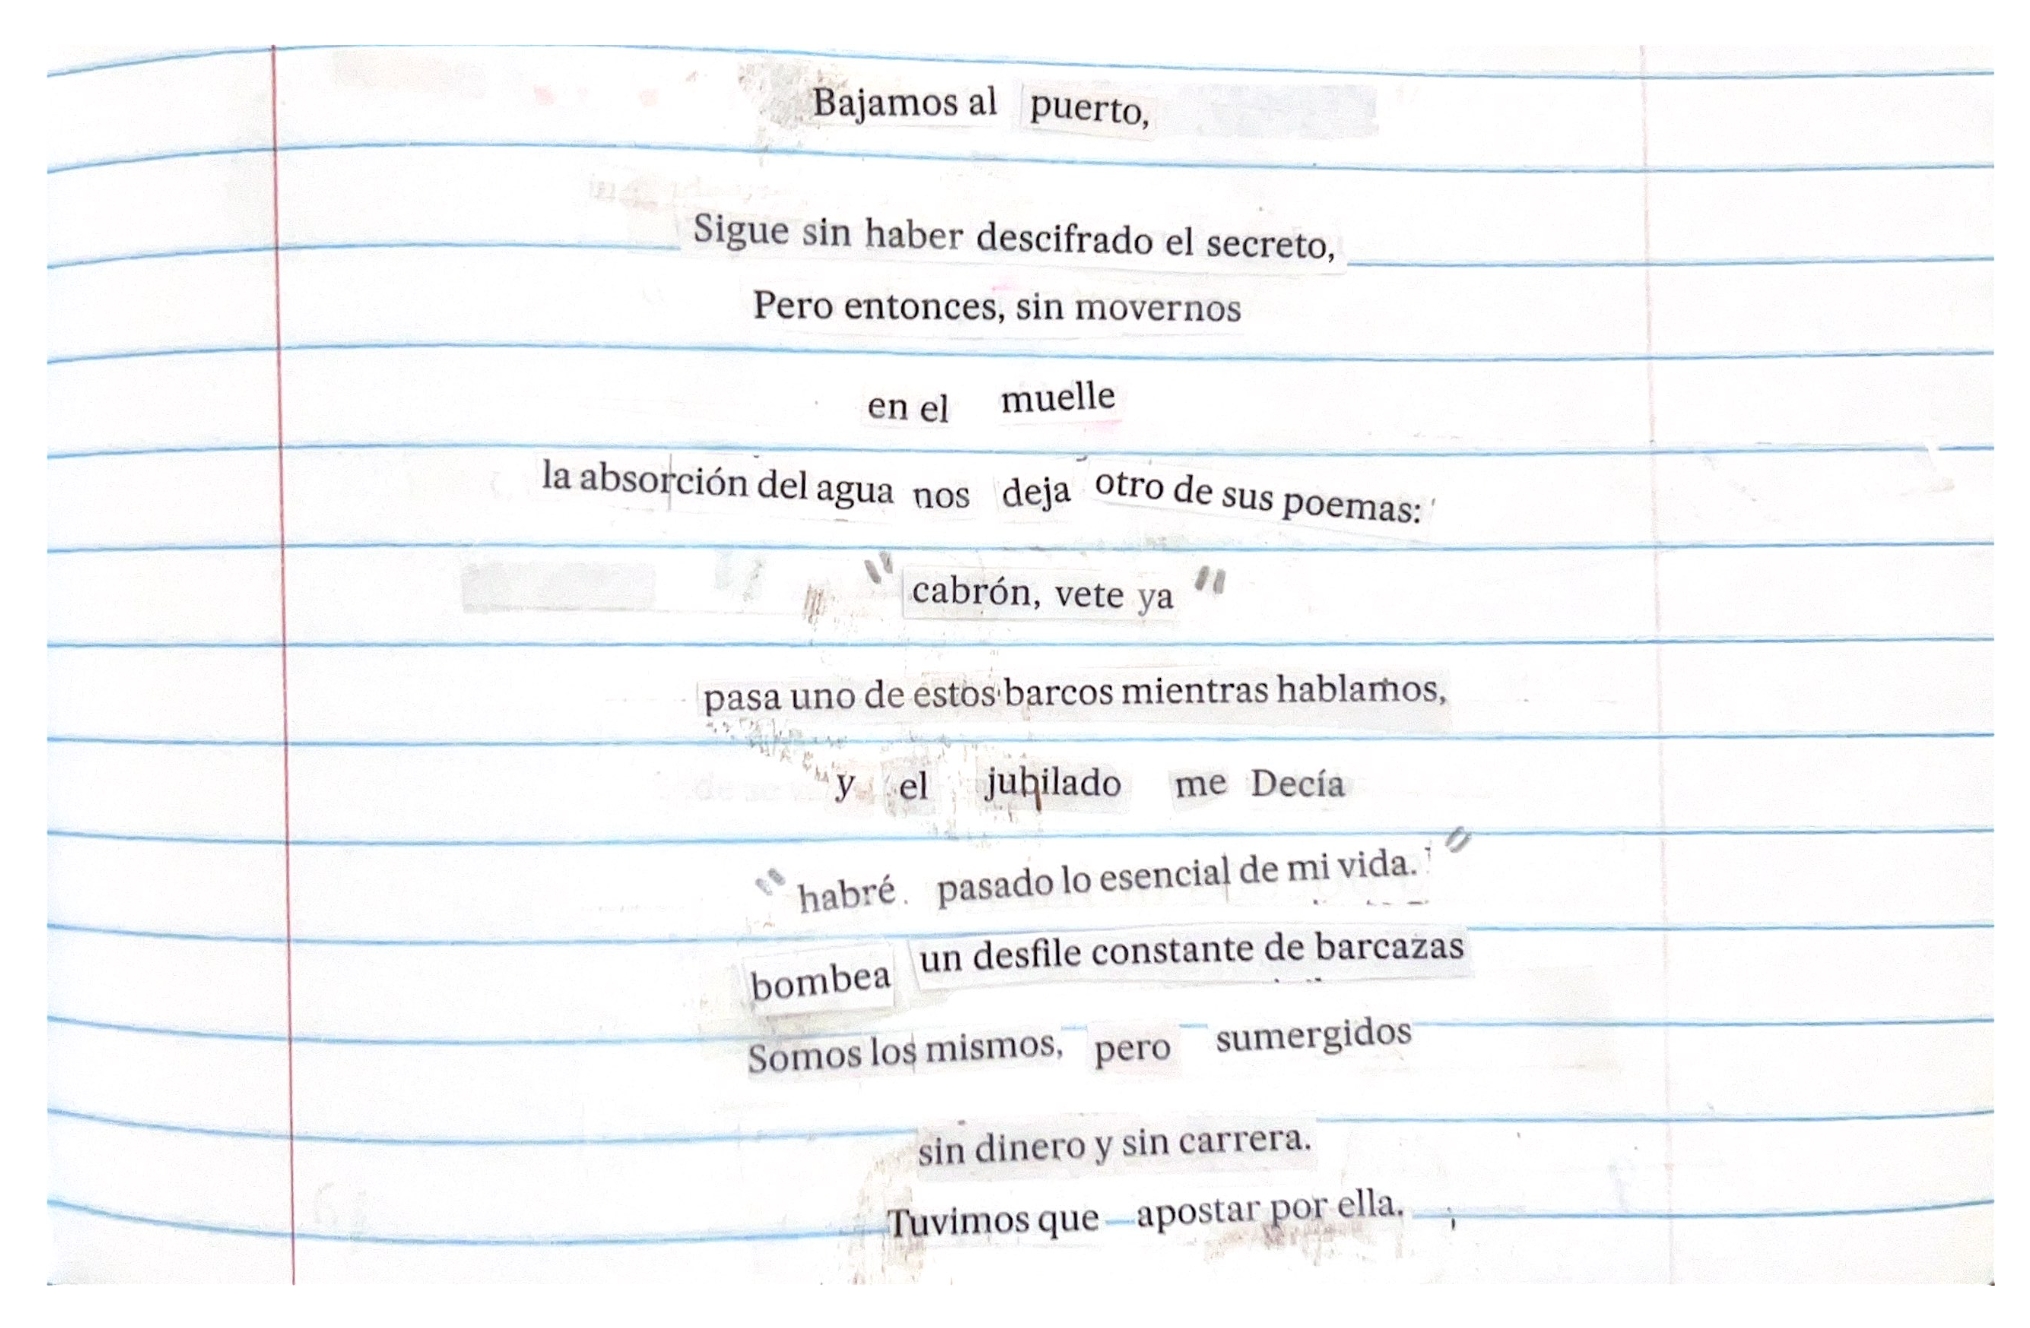 Bajamos al puerto,
Sigue sin haber descifrado el secreto,
Pero entonces, sin movernos
en el muelle
la absorción del agua nos deja otro de sus poemas:
"cabrón, vete ya"
pasa uno de estos barcos mientras hablamos,
y el jubilado me Decía
"habré pasado lo esencial de mi vida."
bombea un desfile constante de barcazas
Somos los mismos, pero sumergidos
sin dinero y sin carrera.
Tuvimos que apostar por ella.